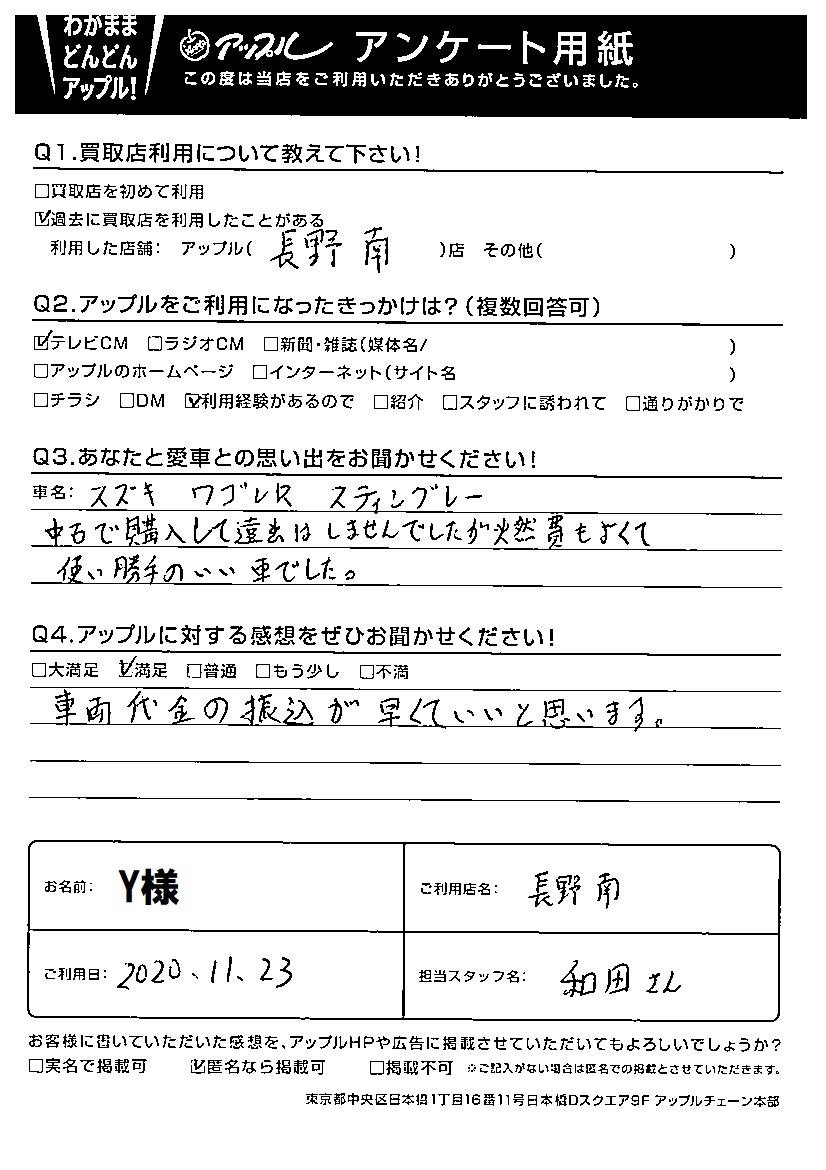 わがまま
どんどん
アップル!
アップル アンケート用紙
この度は当店をご利用いただきありがとうございました。
Q1.買取店利用について教えて下さい!
□買取店を初めて利用
☑過去に買取店を利用したことがある
利用した店舗: アップル( 長野南 )店 その他( )
Q2.アップルをご利用になったきっかけは?(複数回答可)
☑テレビCM □ラジオCM □新聞・雑誌(媒体名/ )
□アップルのホームページ □インターネット(サイト名 )
□チラシ □DM ☑利用経験があるので □紹介 □スタッフに誘われて □通りがかりで
Q3.あなたと愛車との思い出をお聞かせください!
車名: スズキ ワゴンR スティングレー
中古で購入して遠出はしませんでしたが燃費もよくて
使い勝手のいい車でした。
Q4.アップルに対する感想をぜひお聞かせください!
□大満足 ☑満足 □普通 □もう少し □不満
車両代金の振込が早くていいと思います。
お名前: Y様
ご利用店名: 長野南
ご利用日: 2020、11、23
担当スタッフ名: 和田さん
お客様に書いていただいた感想を、アップルHPや広告に掲載させていただいてもよろしいでしょうか?
□実名で掲載可 ☑匿名なら掲載可 □掲載不可 ※ご記入がない場合は匿名での掲載とさせていただきます。
東京都中央区日本橋1丁目16番11号日本橋Dスクエア9F アップルチェーン本部